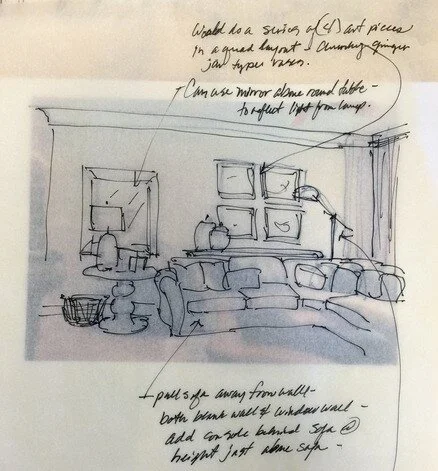 Would do a series of (4) art pieces
in a quad layout - Chunky ginger
jar types vases.
Can use mirror above round table -
to reflect light from lamp.
pull sofa away from wall -
both blank wall & window wall -
add console behind sofa @
height just above sofa -